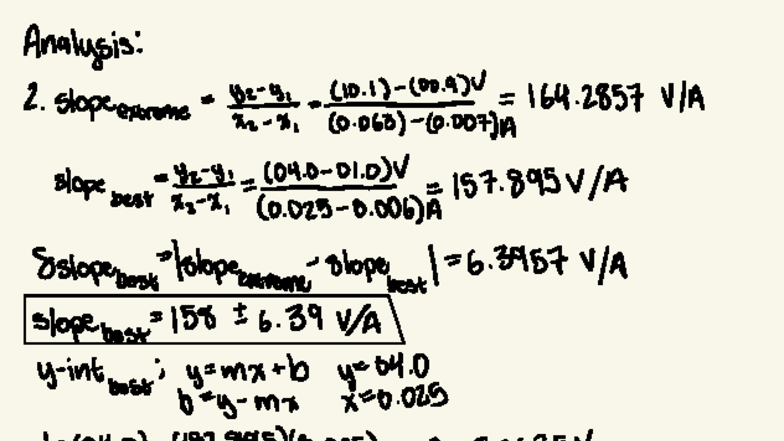 Analysis:
2. slope extreme = y2-y1 / x2-x1 = (10.1)-(00.9)V / (0.063)-(0.007)A = 164.2857 V/A
slope best = y2-y1 / x2-x1 = (04.0-01.0)V / (0.025-0.006)A = 157.895 V/A
δslope best = |slope extreme - slope best| = 6.3957 V/A
slope best = 158 ± 6.39 V/A
y-int best; y=mx+b y=04.0
b=y-mx x=0.025